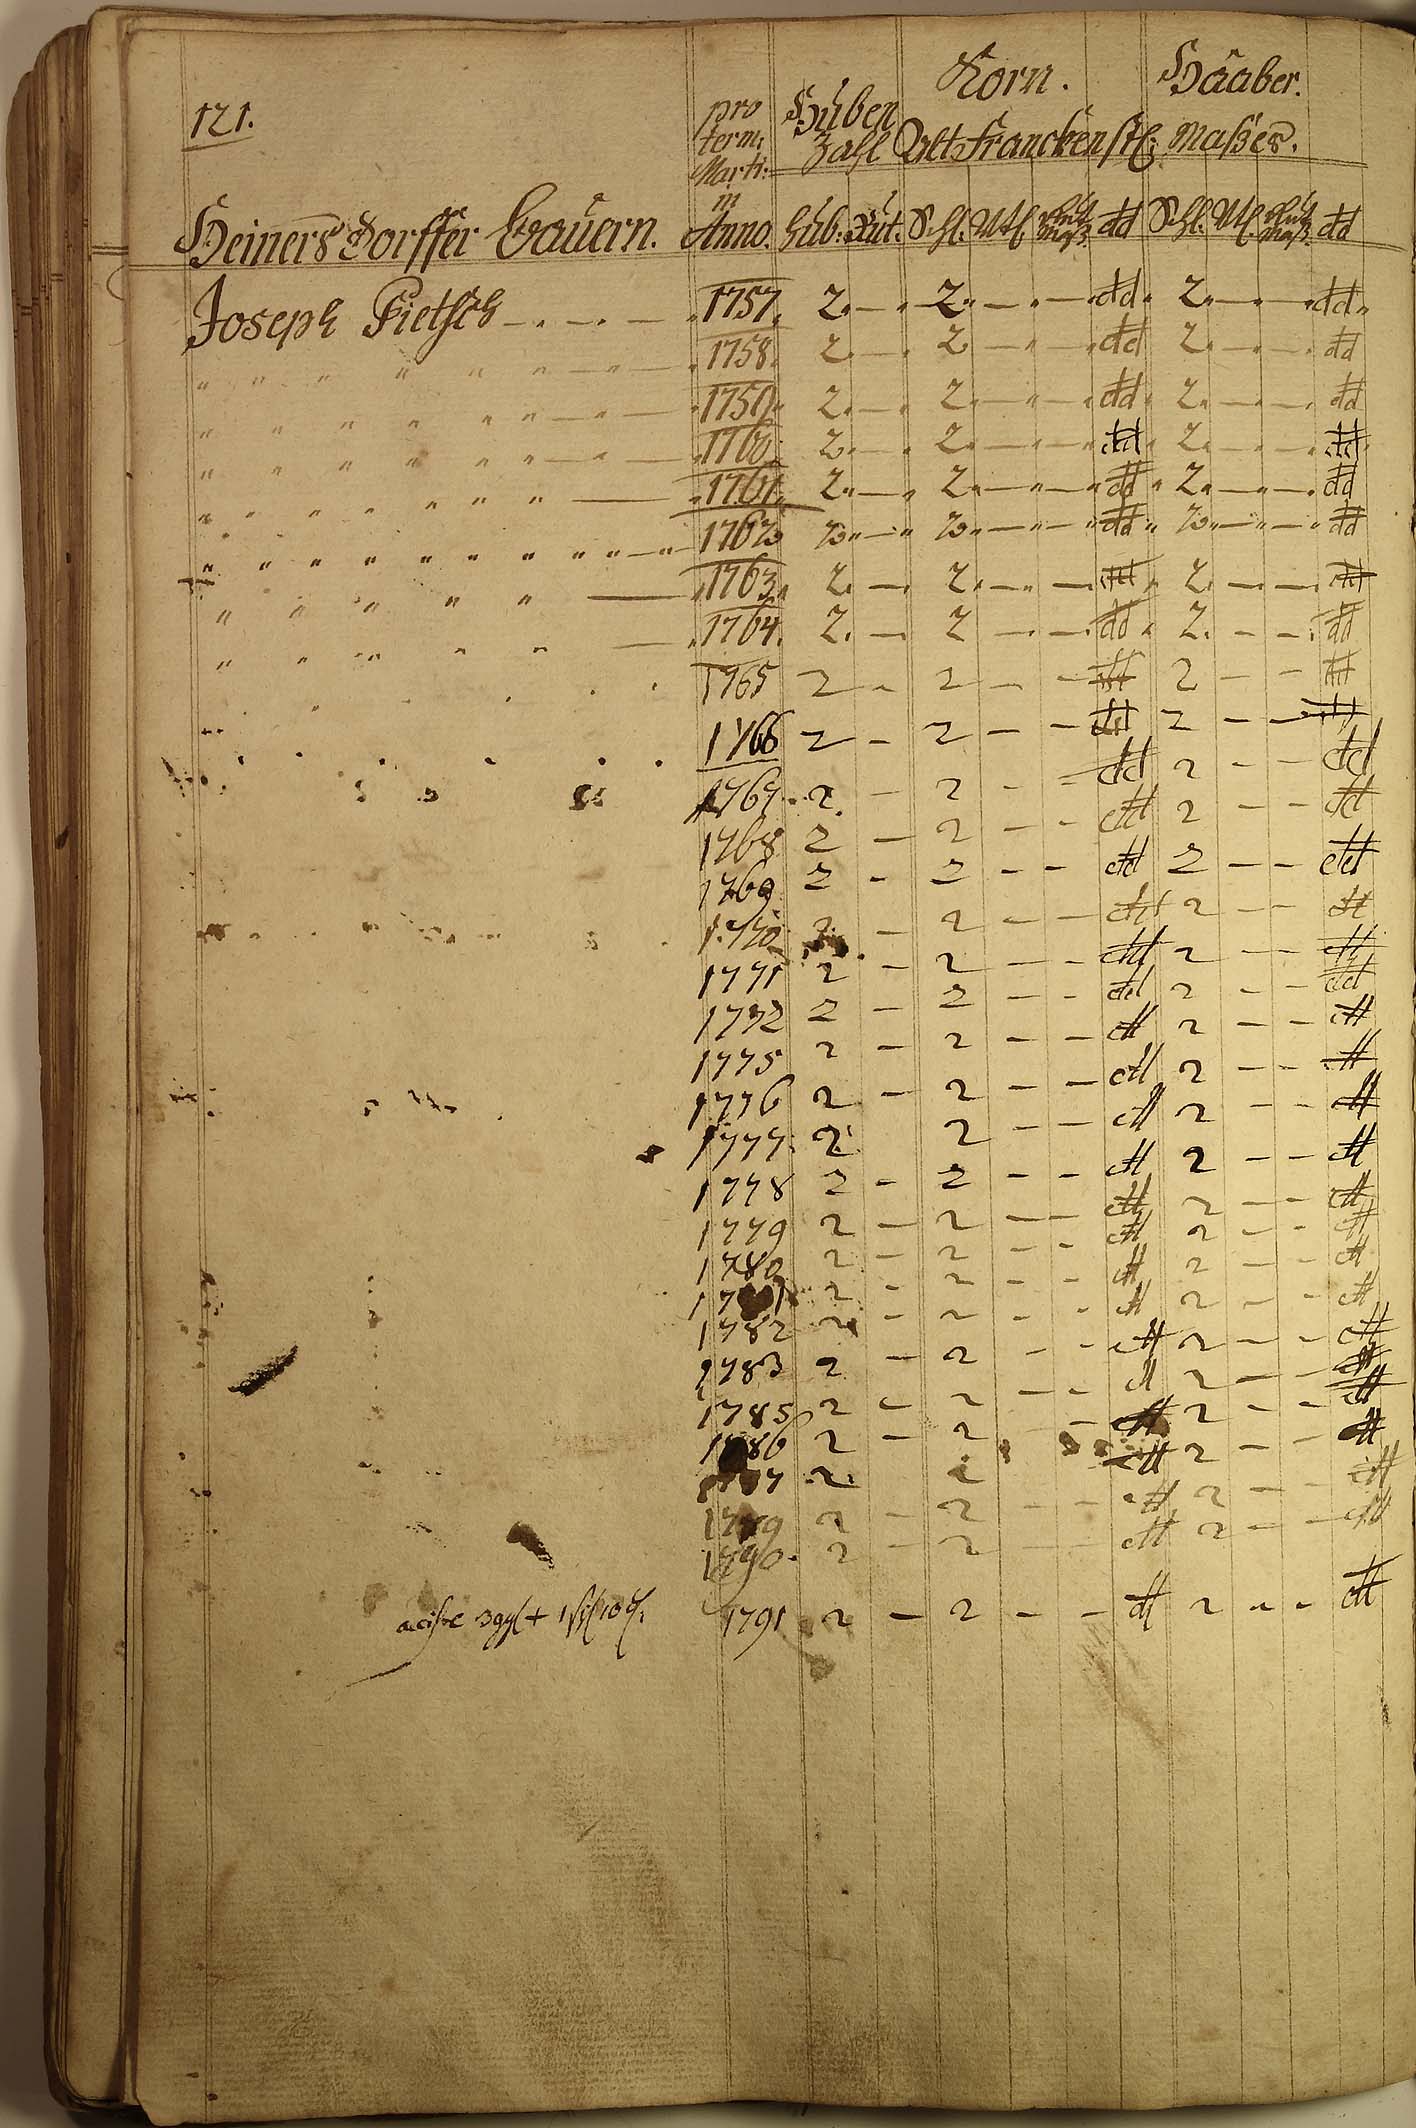 121.
Korn. Haaber.
pro Huben
term: Zahl Alt Franckenst: Maßes.
Marti:
in
Heinersdorffer Bauern. Anno. Hub: Rut. Schl. Vtl. Maß. dd Schl. Vtl. Maß. dd
Joseph Pietsch 1757. 2. — 2. — — dd. 2. — — dd.
" 1758. 2. — 2. — — dd 2. — — dd
" 1759. 2. — 2. — — dd 2. — — dd
" 1760. 2. — 2. — — dd 2. — — dd
" 1761. 2. — 2. — — dd 2. — — dd
" 1762 2. — 2. — — dd 2. — — dd
" 1763. 2. — 2. — — dd 2. — — dd
" 1764. 2. — 2 — — dd 2. — — dd
1765 2 - 2 — — dd 2 — — dd
1766 2 — 2 — — dd 2 — — dd
1767. 2. — 2 — — dd 2 — — dd
1768 2 — 2 — — dd 2 — — dd
1769 2 - 2 — — dd 2 — — dd
1770 2 — 2 — — dd 2 — — dd
1771 2 — 2 — — dd 2 — — dd
1772 2 — 2 — — dd 2 — — dd
1775 2 — 2 — — dd 2 — — dd
1776 2 — 2 — — dd 2 — — dd
1777. 2 2 — — dd 2 — — dd
1778 2 - 2 — — dd 2 — — dd
1779 2 — 2 — — dd 2 — — dd
1780 2 — 2 — — dd 2 — — dd
2 — 2 — — dd 2 — — dd
1782 2 — 2 — — dd 2 — — dd
1783 2 — 2 — — dd 2 — — dd
1785 2 — 2 — — dd 2 — — dd
1786 2 — 2 — dd 2 — — dd
2. 2 dd 2 — — dd
1789 2 — 2 — — dd 2 — — dd
1790. 2 — 2 — — dd 2 — — dd
1791 2 — 2 — — dd 2 — — dd